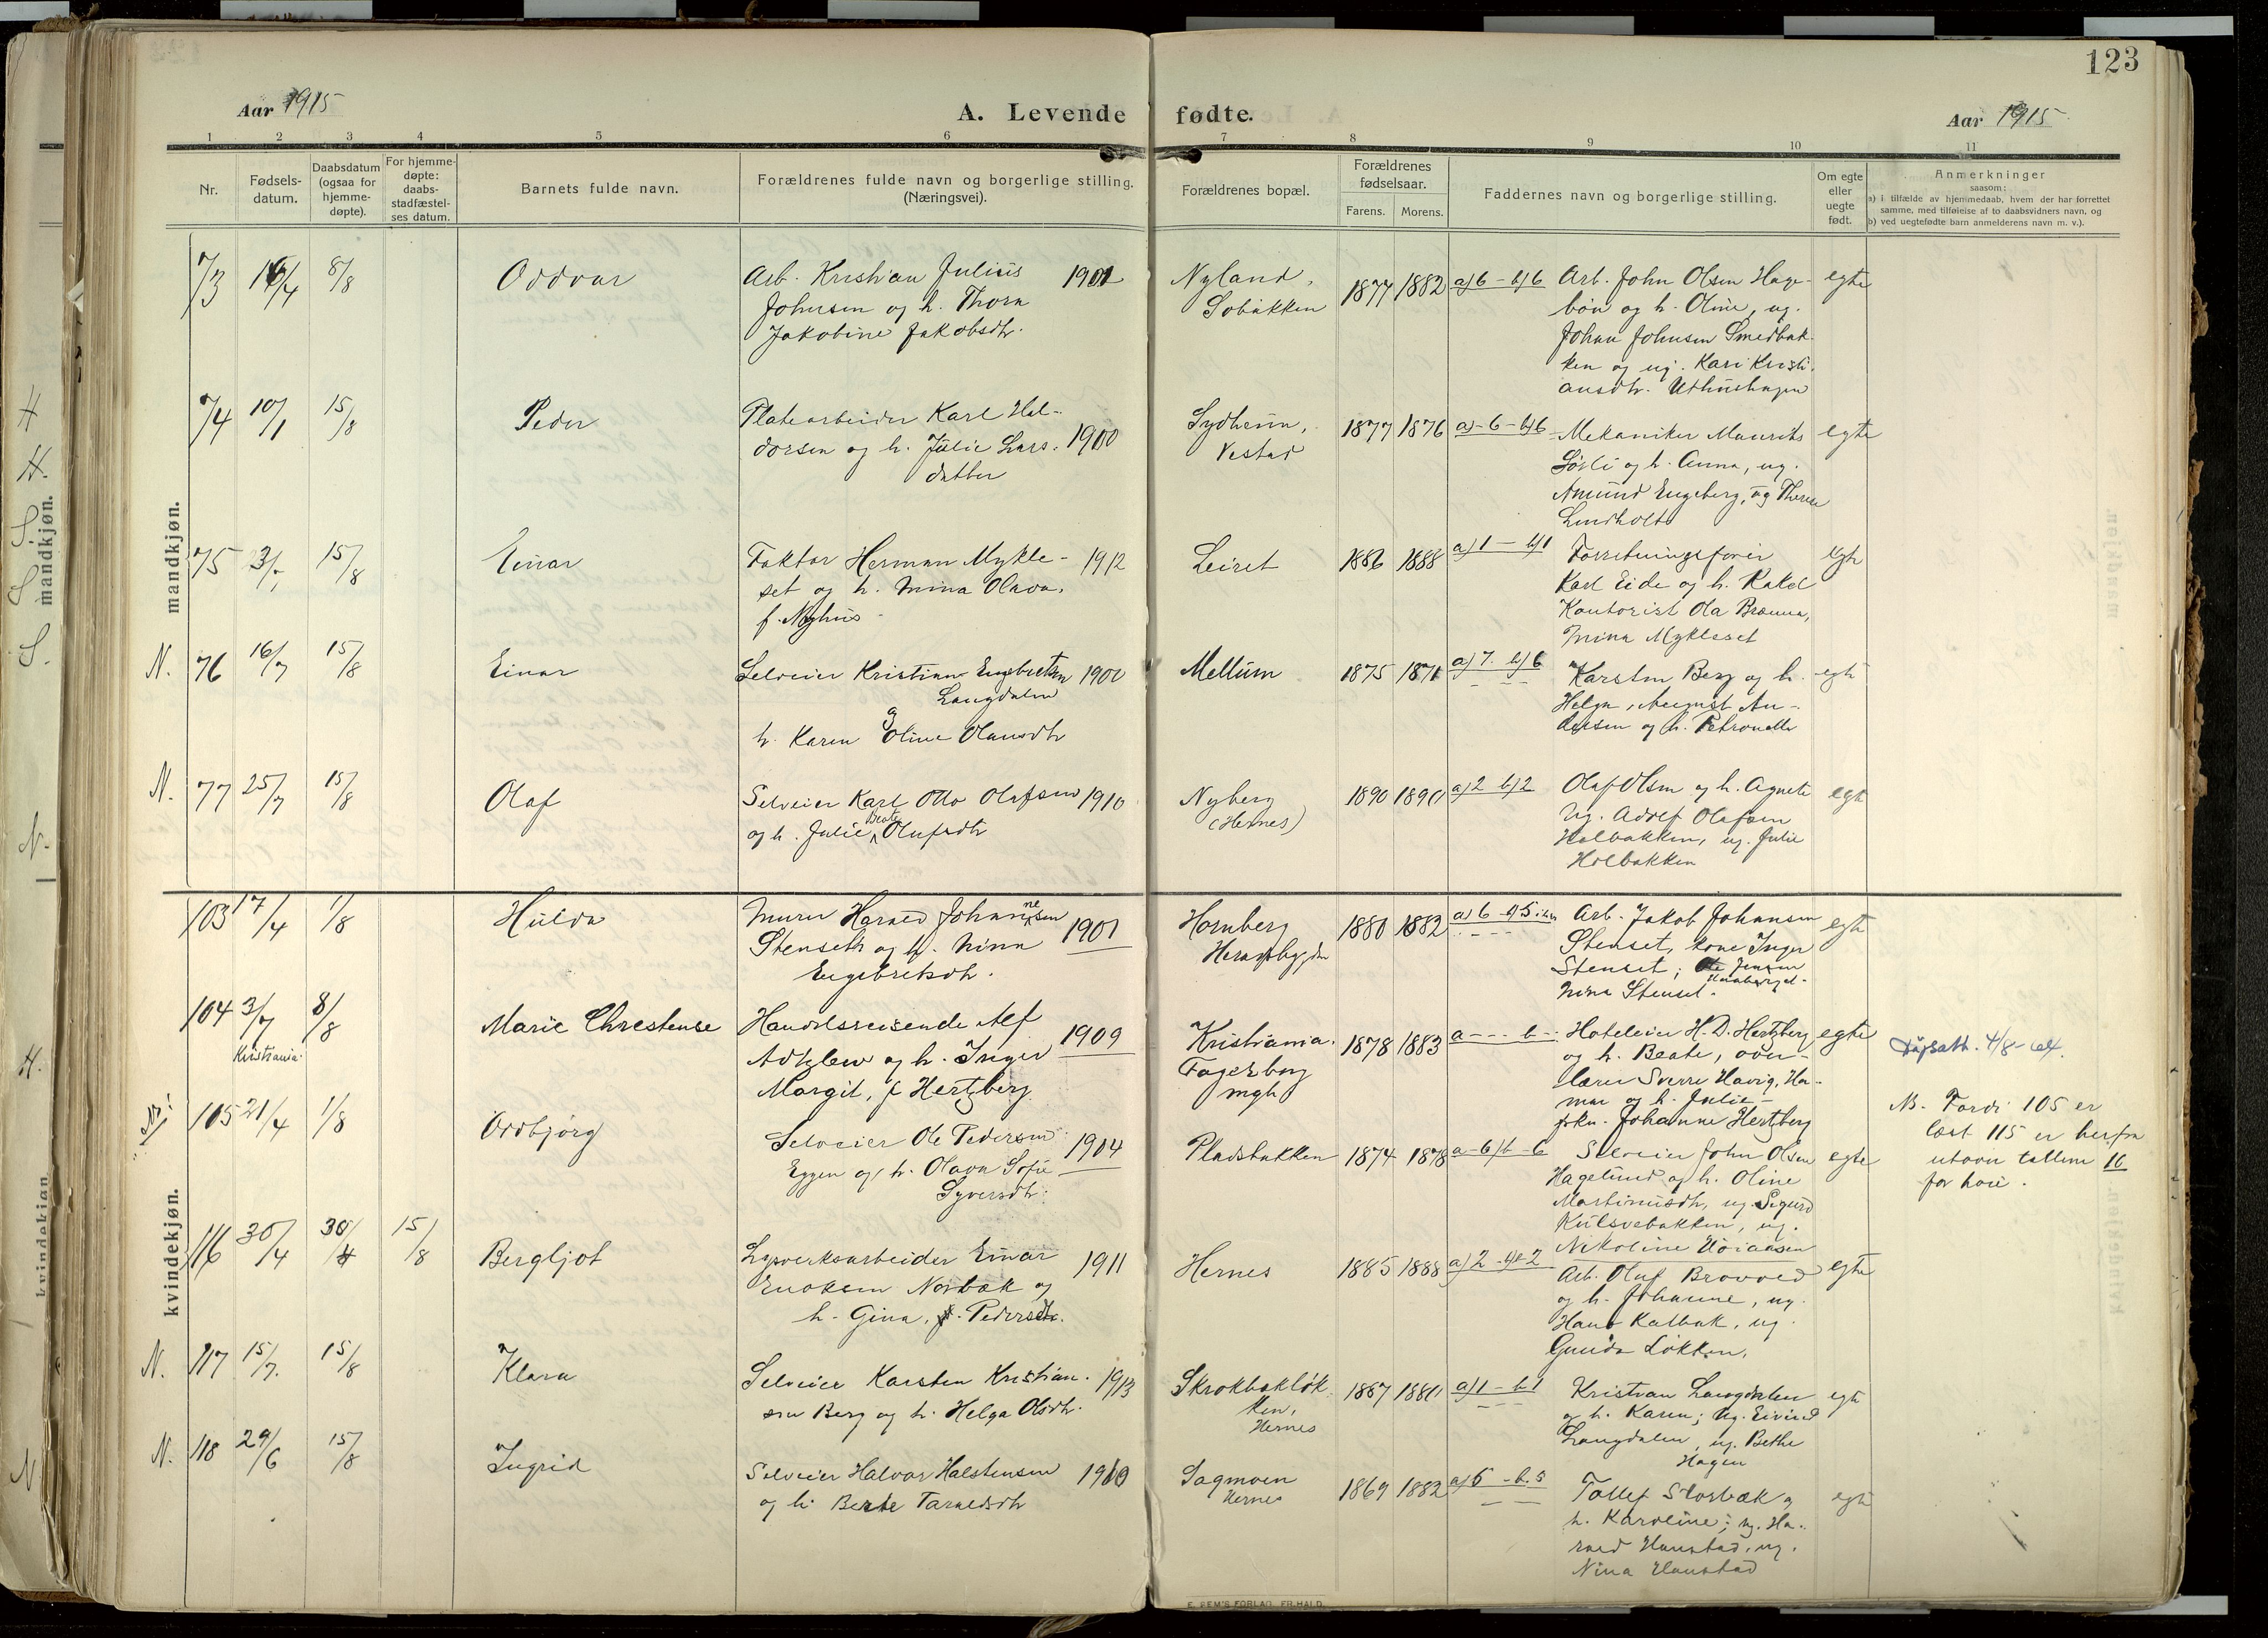 123
Aar 1915
A. Levende fødte.
Aar 1915
1 2 3 4 5 6 7 8 9 10 11
Nr.
Fødsels-
datum.
Daabsdatum
(ogsaa for
hjemme-
døpte).
For hjemme-
døpte:
daabs-
stadfæstel-
ses datum.
Barnets fulde navn.
Forældrenes fulde navn og borgerlige stilling.
(Næringsvei).
Forældrenes bopæl.
Forældrenes
fødselsaar.
Farens. Morens.
Faddernes navn og borgerlige stilling.
Om egte
eller
uegte
født.
Anmerkninger
saasom:
a) i tilfælde av hjemmedaab, hvem der har forrettet
samme, med tilføielse af to daabsvidners navn, og
b) ved uegtefødte barn anmelderens navn m. v.).
mandkjøn.
73 16/4 8/8 Oddvar
Arb. Kristian Julius 1901
Johnsen og h. Thora
Jakobine Jakobsdtr.
Nyland,
Sobakken
1877 1882 a) 6 - b) 6
Arb. John Olsen Hage-
bön og h. Oline, ug.
Johan Johnsen Smedbak-
ken og ug. Kari Kristi-
ansdtr. Uthushagen
egte
74 10/1 15/8 Peder
Platearbeider Karl Hal-
dorsen og h. Julie Lars- 1900
datter
Sydheim,
Vestad
1877 1876 a) - 6 - b) 6
Mekaniker Maurits
Sörli og h. Anna, ug.
Amund Engeberg, ug Therese
Lindholt
egte
75 15/8 Einar
Faktor Herman Mykle- 1912
set og h. Mina Olava,
f. Nyhus
Leiret
1886 1888 a) 1 - b) 1
Forretningsfører
Karl Eide og h. Rakel
Kontorist Ola Brænna,
Mina Mykleset
egte
N. 76 16/7 15/8 Einar
Selveier Kristian Engebretsen 1900
Langdalen
og
h. Karen Oline Olausdtr
Mellum
1875 1871 a) 7. b) 6
Karsten Berg og h.
Helga, August An-
dersen og h. Petronella
egte
N. 77 25/7 15/8 Olaf
Selveier Karl Otto Olafsen 1910
og h. Julie Beate Olufsdtr
Nyberg
(Hernes)
1890 1890 a) 2 b) 2
Olaf Olsen og h. Agnete
Ug. Adolf Olafsen
Holbakken, ug. Julie
Holbakken
egte
kvindekjøn.
103 17/4 1/8 Hulda
Murer Harald Johannesen
Stenseth og h. Nina 1901
Engebretsdtr.
Hornberg
1880 1882 a) 6 - b) 5
Arb. Jakob Johansen
Stenset, kone Inger
Stenset; Ole Jensen
Nina Stenset.
egte
104 3/7 8/8 Marie Chrestense
Kristiania.
Handelsreisende Alf 1909
og h. Inger
Margit, f Hertzberg
Kristiania.
Fagerborg
mgh
1878 1883 a - - - b - -
Hoteleier H. D. Hertzberg
og h. Beate, over-
lærer Sverre Havig, Ha-
mar og h. Julie -
frkn. Johanne Hertzberg
egte
105 21/4 1/8 Oddbjörg
Selveier Ole Pedersen 1904
Eggen og h. Olava Sofie
Syversdtr.
Pladsbakken
1874 1878 a - 6) b - 6
Selveier John Olsen
Hagelund og h. Oline
Martinusdtr, ug. Sigurd
Kulsvebakken, ug.
Nikoline
egte
N. Fordi 105 er
læst 115 er herfra
utover tallene 10
for høie.
116 30/4 30/4 15/8 Bergljot
Lysverksarbeider Einar 1911
Enoksen Norbæk og
h. Gina, Pedersdtr.
Hernes
1885 1888 a) 2 - b) 2
Arb. Oluf Brovold
og h. Johanne, ug.
Hans Kalbak, ug.
Gunda Løkken.
egte
N. 117 15/7. 15/8 Klara
Selveier Karsten Kristian- 1913
sen Berg og h. Helga Olsdtr.
Skrokbakløk-
ken,
Hernes
1887 1880 a) 1 - b) 1
Kristian Langdalen
og h. Karen; ug. Eivind
Langdalen, ug. Bethe
Hagen
egte
N. 118 29/6 15/8 Ingrid
Selveier Halvor Halstensen 1910
og h. Berte Taraldsdtr
Sagmoen
Hernes
1869 1882 a) 5 - b. 5
Tollef Storbæk og
h. Karoline; ug. Ha-
rald Hanstad, ug.
Nina Hanstad
egte
E. SEM'S FORLAG, FR.HALD.